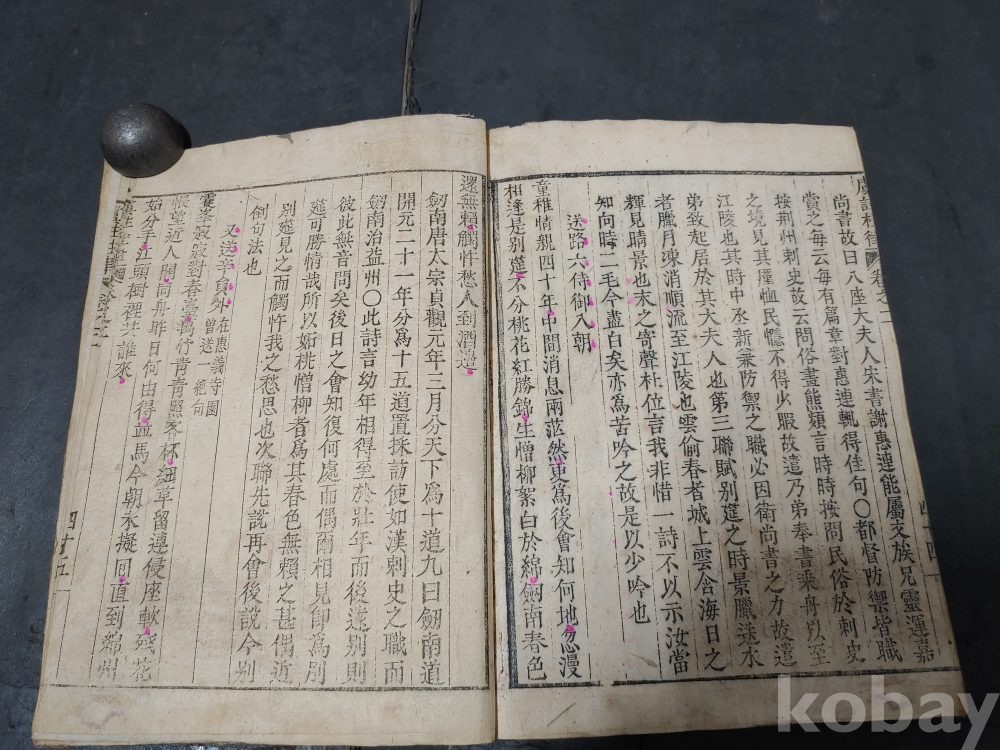 虞註杜律 卷之二
尚書故曰八座大夫人宋書謝惠連能屬文族兄靈運嘉
賞之每云每有篇章對惠連輒得佳句〇都督防禦皆職
按荆州刺史故云問俗畫熊類言時時按問民俗於刺史
之境見其厪恤民隱不得少暇故遣乃弟奉書乘舟以至
江陵也其時中丞新兼防禦之職必因衛尚書之力故遣
弟致起居於其大夫人也第三聯賦别筵之時景臘送水
者臘月凍消順流至江陵也雲偷春者城上雲含海日之
輝見晴景也末之寄聲杜位言我非惜一詩不以示汝當
知向時二毛今盡白矣亦為苦吟之故是以少吟也
送路六侍御入朝
童稚情親四十年中間消息兩茫然更爲後會知何地忽漫
相逢是别筵不分桃花紅勝錦生憎柳絮白於綿劒南春色
四十四
還無賴觸忤愁人到酒邊
劒南唐太宗貞觀元年三月分天下爲十道九曰劒南道
開元二十一年分爲十五道置採訪使如漢刺史之職而
劒南治益州〇此詩言幼年相得至於壯年而後遠别則
彼此無音問矣後日之會知復何處而偶爾相見卽爲别
筵可勝情哉所以妬桃憎柳者爲其春色無賴之甚偶近
别筵見之而觸忤我之愁思也次聯先說再會後說今别
倒句法也
又送辛員外 在惠義寺園 曾送一絕句
雙峯寂寂對春臺萬竹青青照客杯細草留連侵座軟殘花
悵望近人開同舟昨日何由得並馬今朝未擬回直到綿州
始分手江頭樹裡共誰來
四十五